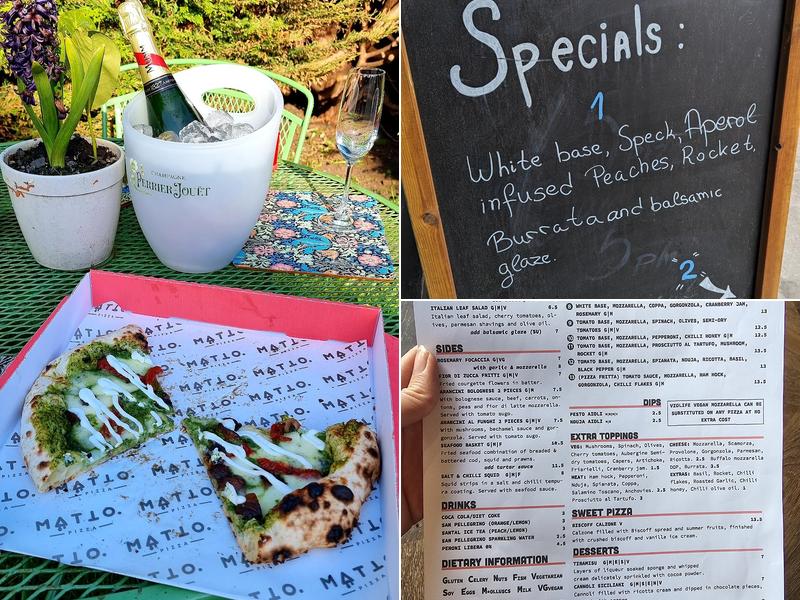 MUMM
CHAMPAGNE
PERRIER-JOUËT
MATTO.
PIZZA
Specials:
1
White base, Speck, Aperol
infused Peaches, Rocket,
Burrata and balsamic
glaze.
2
ITALIAN LEAF SALAD G|M|V 6.5
Italian leaf salad, cherry tomatoes, ol-
ives, parmesan shavings and olive oil.
add balsamic glaze (SU) 7
SIDES
ROSEMARY FOCACCIA G|VG
with garlic & mozzarella
FIOR DI ZUCCA FRITTI G|M|V
Fried courgette flowers in batter.
ARANCINI BOLOGNESE 2 PIECES G|M 7.5
With bolognese sauce, beef, carrots, on-
ions, peas and fior di latte mozzarella.
Served with tomato sugo.
ARANCINI AL FUNGHI 2 PIECES G|M|V 7.5
With mushrooms, bechamel sauce and gor-
gonzola. Served with tomato sugo.
SEAFOOD BASKET G|M|F 10.5
Fried seafood combination of breaded &
battered cod, squid and prawns.
add tartar sauce 11.5
SALT & CHILLI SQUID G|M|F 8
Squid strips in a salt and chilli tempu-
ra coating. Served with seafood sauce.
DRINKS
COCA COLA/DIET COKE 3
SAN PELLEGRINO (ORANGE/LEMON) 3
SANTAL ICE TEA (PEACH/LEMON) 3
SAN PELLEGRINO SPARKLING WATER 2.5
PERONI LIBERA 0% 4.5
DIETARY INFORMATION
GLUTEN CELERY NUTS FISH VEGETARIAN
SOY EGGS MOLLUSCS MILK VGVEGAN
8 WHITE BASE, MOZZARELLA, COPPA, GORGONZOLA, CRANBERRY JAM,
ROSEMARY G|M 13
9 TOMATO BASE, MOZZARELLA, SPINACH, OLIVES, SEMI-DRY
TOMATOES G|M|V 12.5
10 TOMATO BASE, MOZZARELLA, PEPPERONI, CHILLI HONEY G|M 12.5
11 TOMATO BASE, MOZZARELLA, PROSCIUTTO AL TARTUFO, MUSHROOM,
ROCKET G|M 13
12 TOMATO BASE, MOZZARELLA, SPIANATA, NDUJA, RICOTTA, BASIL,
BLACK PEPPER G|M 13
13 (PIZZA FRITTI) TOMATO SAUCE, MOZZARELLA, HAM HOCK,
GORGONZOLA, CHILLI FLAKES G|M 13.5
DIPS
PESTO AIOLI 2.5
NDUJA AIOLI 2.5
VIOLIFE VEGAN MOZZARELLA CAN BE
SUBSTITUTED ON ANY PIZZA AT NO
EXTRA COST
EXTRA TOPPINGS
VEG: Mushrooms, Spinach, Olives,
Cherry tomatoes, Aubergine Semi-
dry tomatoes, Capers, Artichoke,
Friarielli, Cranberry jam. 1.5
MEAT: Ham hock, Pepperoni,
Nduja, Spianata, Coppa,
Salamino Toscano, Anchovies. 2.5
Prosciutto al Tartufo. 3
CHEESE: Mozzarella, Scamorza,
Provolone, Gorgonzola, Parmesan,
Ricotta. 2.5 Buffalo mozzarella
DOP, Burrata. 3.5
EXTRAS: Basil, Rocket, Chilli
flakes, Roasted Garlic, Chilli
honey, Chilli olive oil. 1
SWEET PIZZA
BISCOFF CALZONE V 13.5
Calzone filled with Biscoff spread and summer fruits, finished
with crushed biscoff and vanilla ice cream.
DESSERTS
TIRAMISU G|M|E|S|V 7
Layers of liqueur soaked sponges and whipped
cream delicately sprinkled with cocoa powder.
CANNOLI SICILIANI G|M|E|S|V 7
Cannoli filled with ricotta cream and dipped in chocolate pieces,